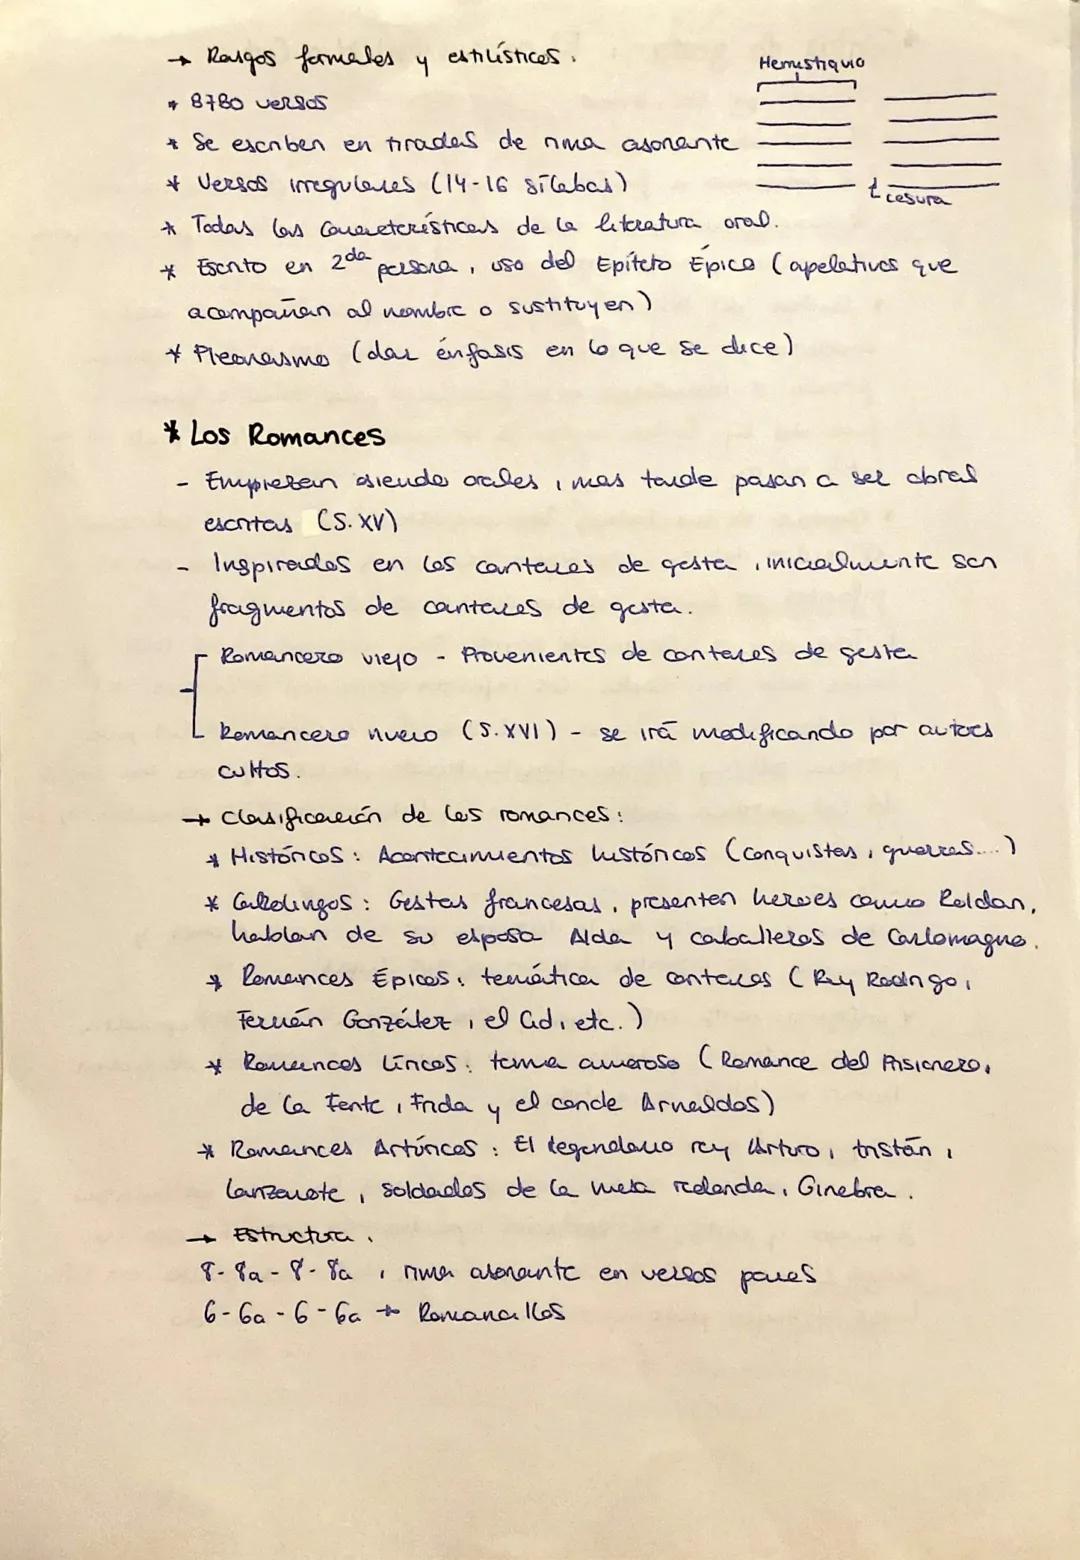 → Rasgos formales y estilísticos.
Hemistiquio
* 8780 versos
* Se escriben en tiradas de rima asonante
* Versos irregulares (14-16 sílabas)
cesura
* Todas las características de la literatura oral.
* Escrito en 2da persona, uso del Epíteto Épico (apelativos que
acompañan al nombre o sustituyen)
* Pleonasmo (dar énfasis en lo que se dice)
* Los Romances
- Empiezan siendo orales, mas tarde pasan a ser obras
escritas (S. XV)
- Inspirados en los cantares de gesta, inicialmente son
fragmentos de cantares de gesta.
Romancero viejo - Provenientes de cantares de gesta
Romancero nuevo (S. XVI) - se irá modificando por autores
cultos.
→ Clasificación de los romances:
* Históricos: Acontecimientos históricos (conquistas, guerras....)
* Carolingos: Gestas francesas, presenten heroes como Roldan,
hablan de su esposa Alda y caballeros de Carlomagno.
* Romances Épicos: temática de cantares (Ruy Rodrigo,
Fernán González, el Cid, etc.)
* Romances Líricos: tema amoroso (Romance del Prisionero,
de la Fente, Frida y el conde Arnaldos)
* Romances Artúricos: El legendario rey Arturo, tristán,
lanzarote, soldados de la mesa redonda, Ginebra.
→ Estructura.
8-8a-8-8a, rima asonante en versos pares
6-6a-6-6a → Romancillos